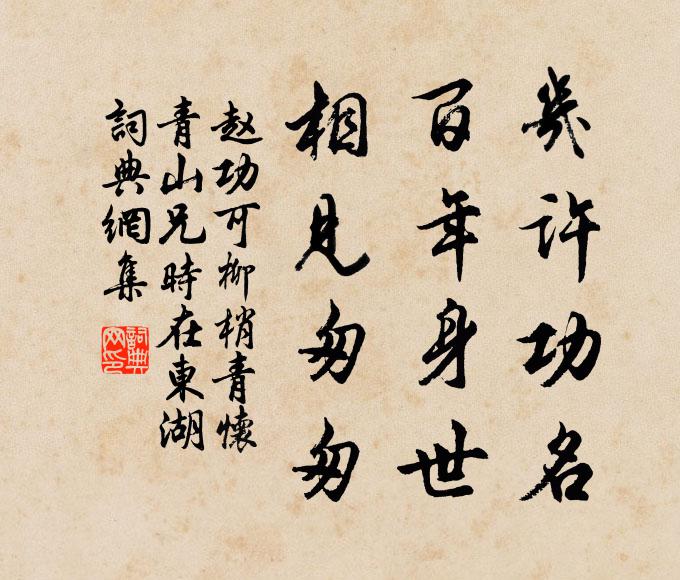 幾許功名
百年身世
相見匆匆
赵功可柳梢青懷
青山兄時在東湖
詞典網集
詞典網印